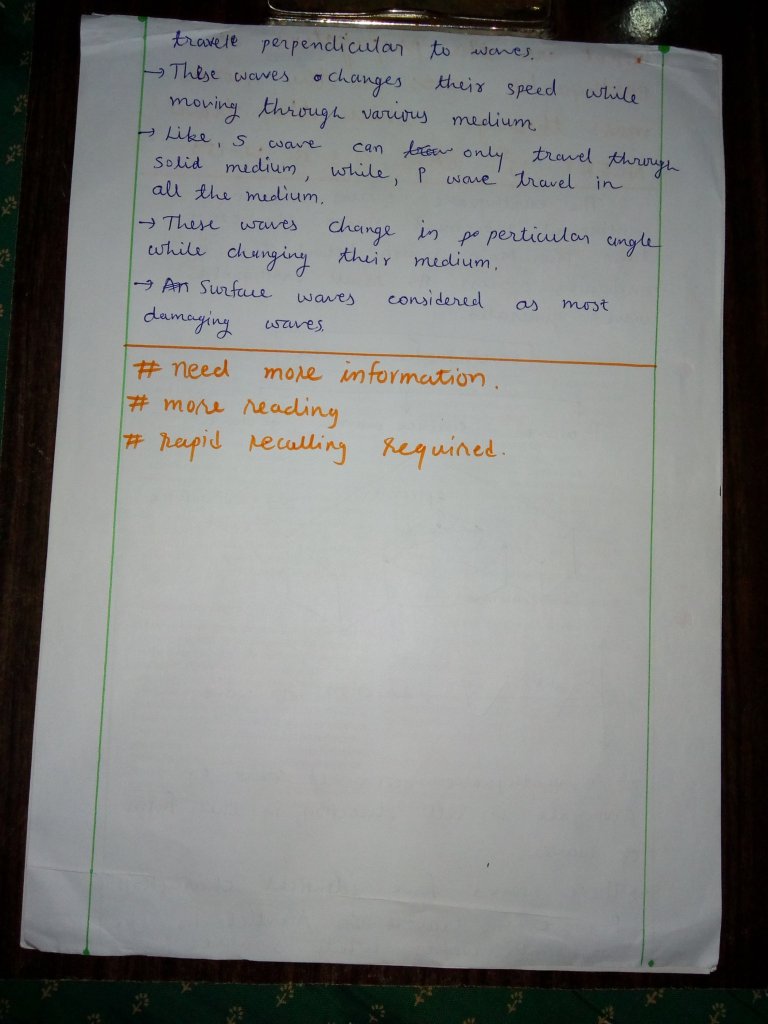 travels perpendicular to waves.
→ These waves changes their speed while
moving through various medium.
→ Like, S wave can only travel through
solid medium, while, P wave travel in
all the medium.
→ These waves change in perticular angle
while changing their medium.
→ Surface waves considered as most
damaging waves.
# need more information.
# more reading
# rapid recalling required.